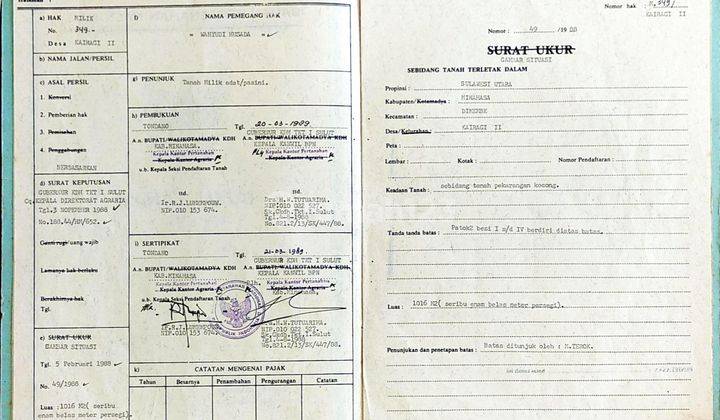 a) HAK MILIK
No. 349.-
Desa KAIRAGI II
b) NAMA JALAN/PERSIL
c) ASAL PERSIL
1. Konversi
2. Pemberian hak
3. Pemisahan
4. Penggabungan
BERDASARKAN
d) SURAT KEPUTUSAN
GUBERNUR KDH TKT I SULUT
Cq. KEPALA DIREKTORAT AGRARIA
Tgl. 3 NOPEMBER 1988
No. 188.44/HM/652.
Ganti rugi/uang wajib
Lamanya hak berlaku
Berakhirnya hak
Tgl.
e) SURAT UKUR
GAMBAR SITUASI
Tgl. 5 Pebruari 1988
No. 49/1988
Luas : 1016 M2( seribu
enam belas meter persegi).
f) NAMA PEMEGANG HAK
= WAHYUDI HUSADA =
g) PENUNJUK Tanah Milik adat/pasini.
h) PEMBUKUAN
TONDANO Tgl. 20-03-1989
A.n BUPATI/WALIKOTAMADYA KDH
KAB. MINAHASA
Kepala Kantor Pertanahan
Kepala Kantor Agraria
u.b. Kepala Seksi Pendaftaran Tanah
GUBERNUR KDH TKT I SULUT
A.n. BUPATI/WALIKOTAMADYA KDH
KEPALA KANWIL BPN
Kepala Kantor Pertanahan
Kepala Kantor Agraria
ttd.
NIP.010 153 674.
ttd.
Drs.H.W.TUTUARIMA.
NIP.010 022 527.
Sk.Gbdh.Tkt.I.Sulut
Tgl.4-8-1988
No.821.2/13/SK/447/88.
i) SERTIPIKAT
TONDANO Tgl. 21-03-1989.
A.n BUPATI/WALIKOTAMADYA KDH
KAB. MINAHASA
Kepala Kantor Pertanahan
Kepala Kantor Agraria
u.b. Kepala Seksi Pendaftaran Tanah
GUBERNUR KDH TKT I SULUT
A.n. BUPATI/WALIKOTAMADYA KDH
KEPALA KANWIL BPN
Kepala Kantor Pertanahan
Kepala Kantor Agraria
NIP.010 153 674
Drs.H.W.TUTUARIMA.
NIP.010 022 527.
Tgl.4-8-1988
No.821.2/13/SK/447/88.
k) CATATAN MENGENAI PAJAK
Tahun Besarnya Penambahan Pengurangan Catatan
Nomor hak : M.349/
KAIRAGI II
Nomor : 49 /1988
SURAT UKUR
GAMBAR SITUASI
SEBIDANG TANAH TERLETAK DALAM
Propinsi : SULAWESI UTARA
Kabupaten/Kotamadya : MINAHASA
Kecamatan : DIMEMBE
Desa/Kelurahan : KAIRAGI II
Peta :
Lembar : Kotak : Nomor Pendaftaran :
Keadaan Tanah : sebidang tanah pekarangan kosong.
Tanda tanda batas : Patok2 besi I s/d IV berdiri diatas batas.
Luas : 1016 M2( seribu enam belas meter persegi).
Penunjukan dan penetapan batas : Batas ditunjuk oleh : N.TEROK.